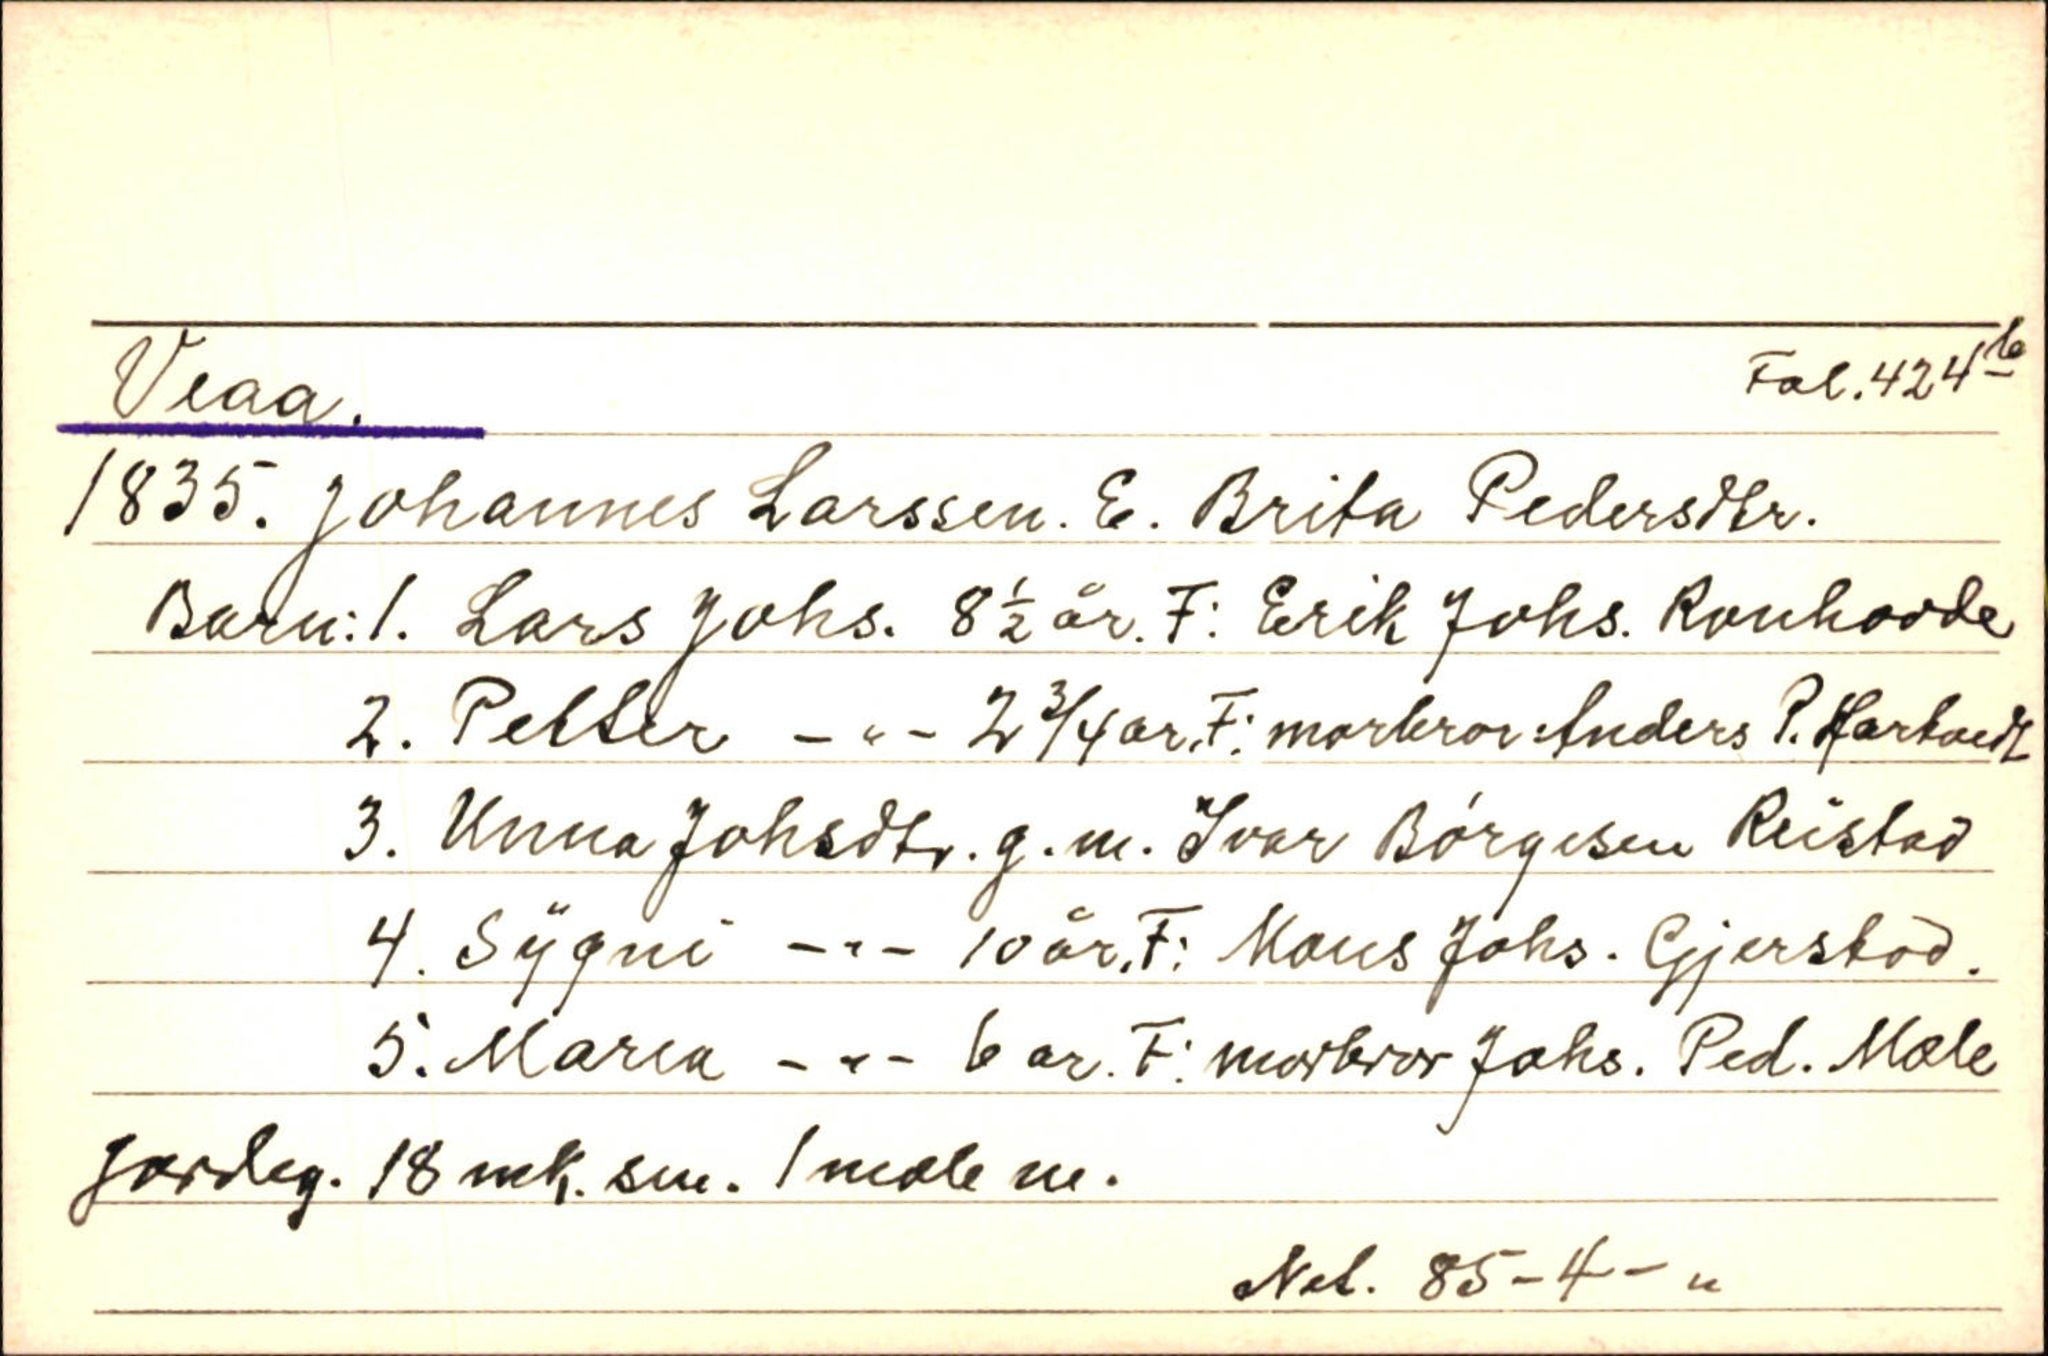 Veaa. Fol. 424b
1835. Johannes Larssen. E. Brita Pedersdtr.
Barn: 1. Lars Johs. 8½ år. F: Erik Johs. Ronhovde
2. Petter -"- 2 3/4 år. F: morbror Anders P. Hartvedt
3. Unna Johsdtr. g.m. Ivar Børgesen Reistad
4. Sÿgni -"- 10 år. F: Mons Johs. Gjerstad.
5. Marea -"- 6 ar. F: morbror Johs. Ped. Mele
Jordeg. 18 mk. sm. 1 mele m.
Net. 85-4-"